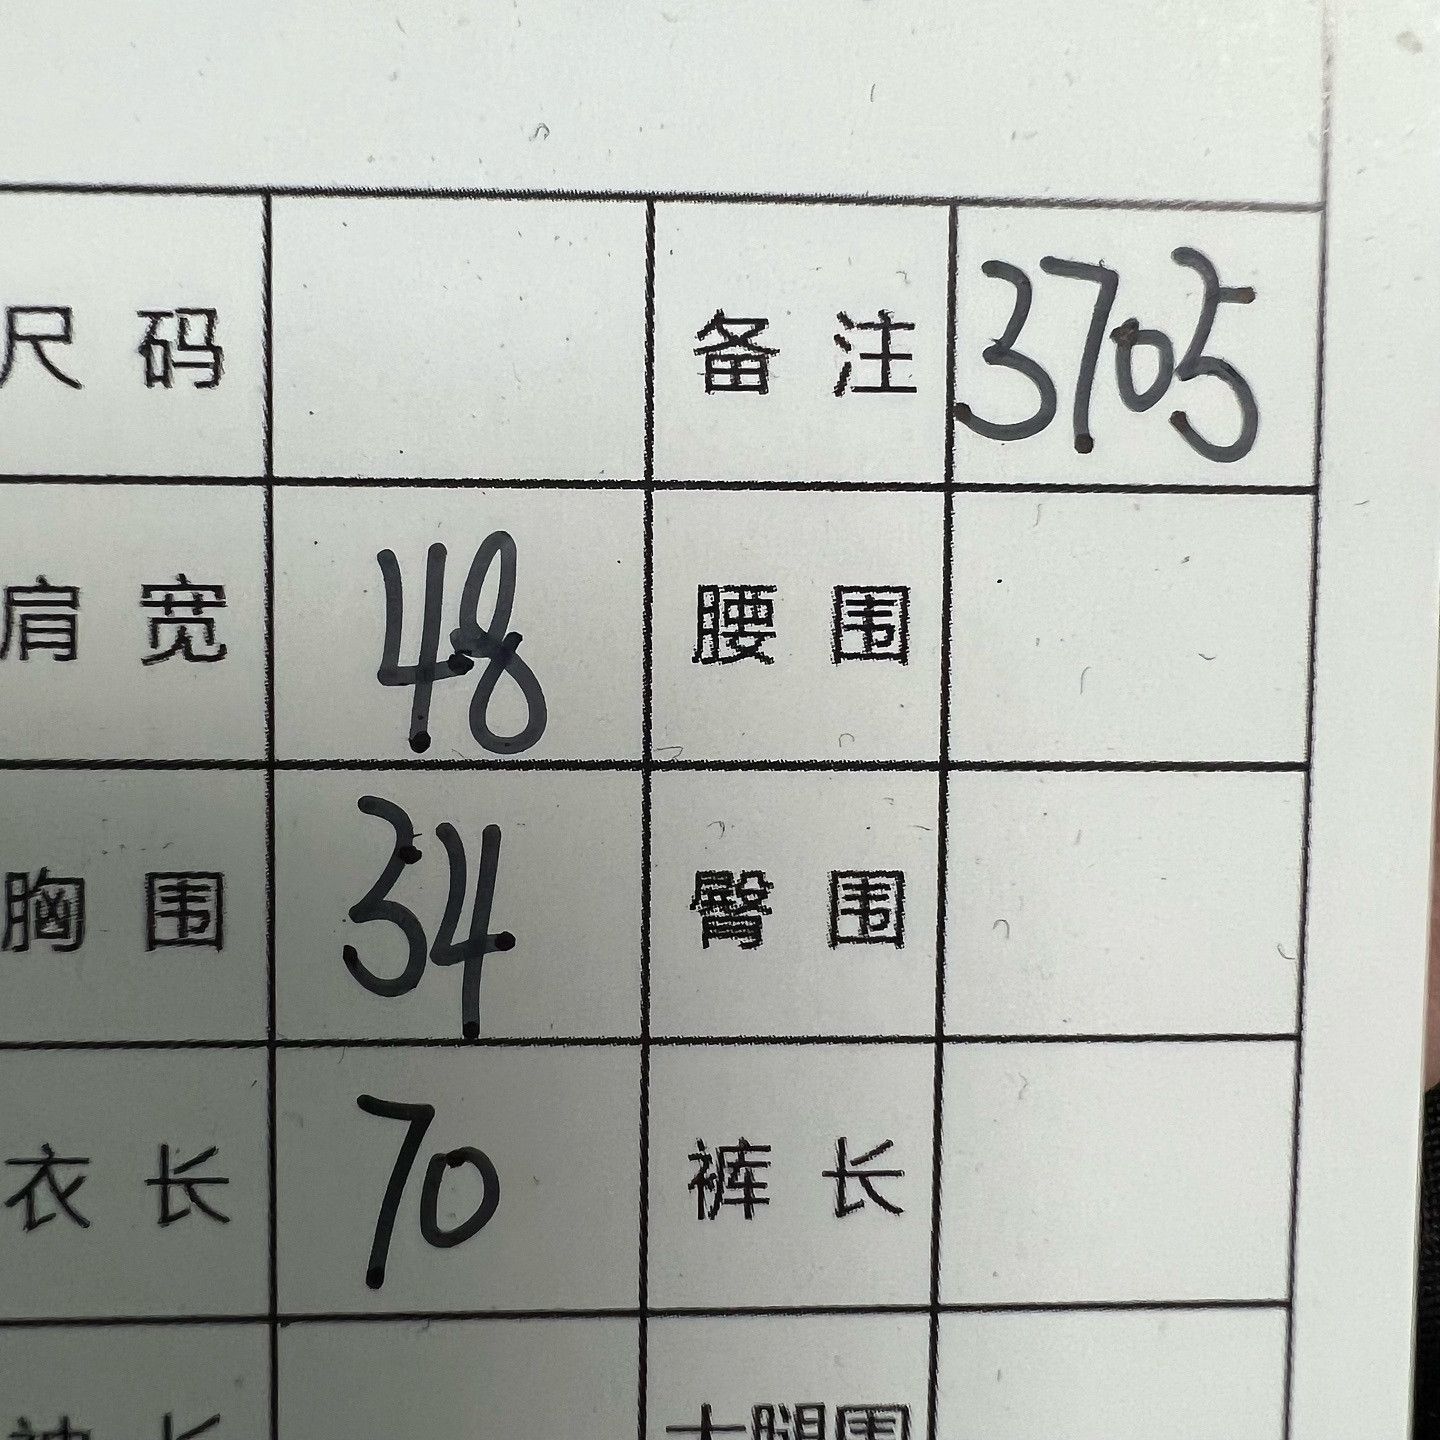 尺码 备注 3705
肩宽 48 腰围
胸围 34 臀围
衣长 70 裤长
袖长 大腿围